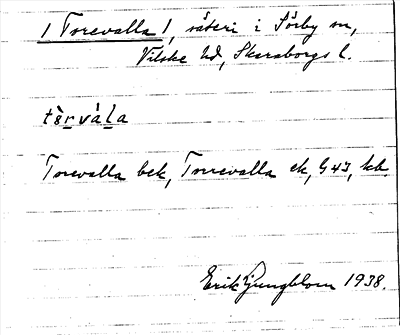 1 Torevalla 1, säteri i Sörby sn,
Vilske hd, Skaraborgs l.
tòrvàla
Torevalla bek, Torrevalla ek, G 43, kb.
Erik Ljungblom 1938.